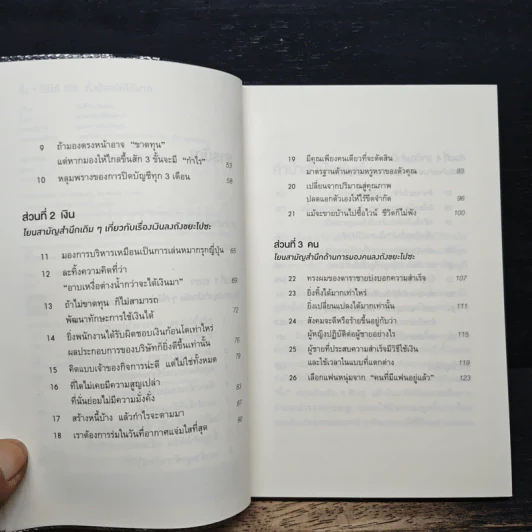 9 ถ้ามองตรงหน้าอาจ “ขาดทุน”
แต่หากมองให้ไกลขึ้นสัก 3 ชั้นจะมี “กำไร” 53
10 หลุมพรางของการปิดบัญชีทุก 3 เดือน 58
ส่วนที่ 2 เงิน
โยนสามัญสำนึกเดิม ๆ เกี่ยวกับเรื่องเงินลงถังขยะไปซะ
11 มองการบริหารเหมือนเป็นการเล่นหมากรุกญี่ปุ่น 65
12 ละทิ้งความคิดที่ว่า
“อาบเหงื่อต่างน้ำกว่าจะได้เงินมา”
13 ถ้าไม่ขาดทุน ก็ไม่สามารถ
พัฒนาทักษะการใช้เงินได้ 72
14 ยิ่งพนักงานได้รับผิดชอบเงินก้อนโตเท่าไหร่
ผลประกอบการของบริษัทก็ยิ่งดีขึ้นเท่านั้น
15 คิดแบบเจ้าของกิจการน่ะดี แต่ไม่ใช่ทั้งหมด
16 ที่ใดไม่เคยมีความสูญเปล่า
ที่นั่นย่อมไม่มีความมั่งคั่ง
17 สร้างหนี้บ้าง แล้วกำไรจะตามมา
18 เราต้องการร่มในวันที่อากาศแจ่มใสที่สุด
19 มีคุณเพียงคนเดียวที่จะตัดสิน
มาตรฐานด้านความหรูหราของตัวคุณ 93
20 เปลี่ยนจากปริมาณสู่คุณภาพ
ปลดแอกตัวเองให้ไร้ขีดจำกัด 96
21 แม้จะขายบ้านไปซื้อไวน์ ชีวิตก็ไม่พัง 100
ส่วนที่ 3 คน
โยนสามัญสำนึกด้านการมองคนลงถังขยะไปซะ
22 ทรงผมของดาราชายบ่งบอกความสำเร็จ 107
23 ยิ่งทิ้งได้มากเท่าไหร่
ยิ่งเปลี่ยนแปลงได้มากเท่านั้น 111
24 สังคมจะดีหรือร้ายขึ้นอยู่กับว่า
ผู้หญิงปฏิบัติต่อผู้ชายอย่างไร 115
25 ผู้ชายที่ประสบความสำเร็จมีวิธีใช้เงิน
และใช้เวลาในแบบที่แตกต่าง 119
26 เลือกแฟนหนุ่มจาก “คนที่มีแฟนอยู่แล้ว” 123